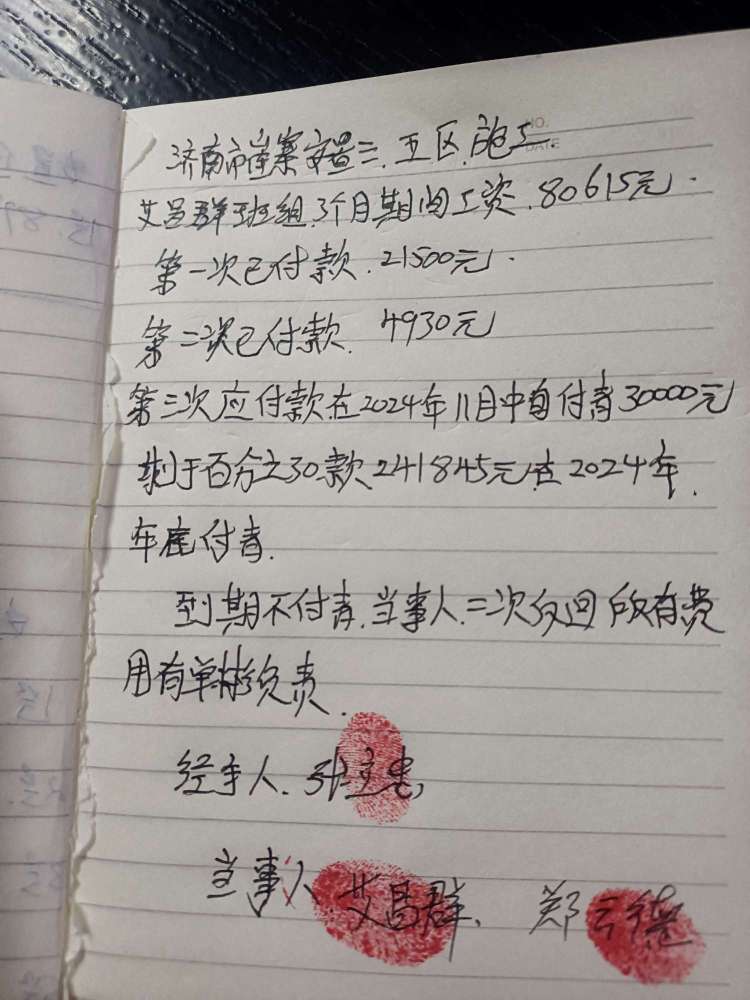 NO.
DATE
济南市崔寨安置三.五区.施工
艾昌群班组.3个月期间工资.80615元.
第一次已付款.21500元.
第二次已付款. 4930元
第三次应付款在2024年11月中旬付清30000元
剩于百分之30款241845元在2024年.
年底付清.
到期不付清.当事人.二次反回所有费
用有单彬负责.
经手人.张忠
当事人 艾昌群. 郑云德